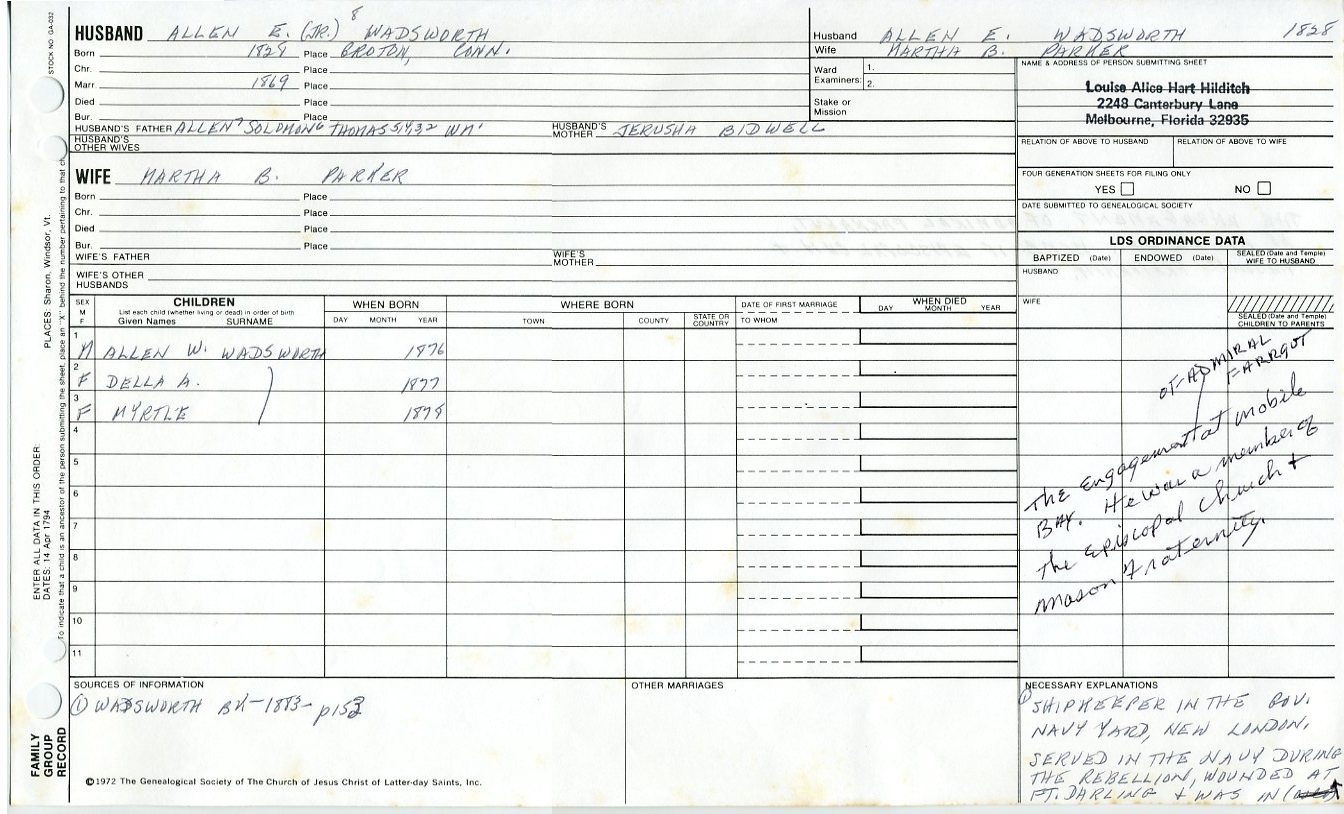 STOCK NO. GA-032
HUSBAND ALLEN E. (JR.) 8 WADSWORTH
Born 1828 Place GROTON, CONN.
Chr. Place
Marr. 1869 Place
Died Place
Bur. Place
HUSBAND'S FATHER ALLEN 7 SOLOMON 6 THOMAS 5,4,3,2 WM 1
HUSBAND'S MOTHER JERUSHA BIDWELL
HUSBAND'S OTHER WIVES
WIFE MARTHA B. PARKER
Born Place
Chr. Place
Died Place
Bur. Place
WIFE'S FATHER
WIFE'S MOTHER
WIFE'S OTHER HUSBANDS
Husband ALLEN E. WADSWORTH 1828
Wife MARTHA B. PARKER
Ward Examiners: 1.
2.
Stake or Mission
NAME & ADDRESS OF PERSON SUBMITTING SHEET
Louise Alice Hart Hilditch
2248 Canterbury Lane
Melbourne, Florida 32935
RELATION OF ABOVE TO HUSBAND RELATION OF ABOVE TO WIFE
FOUR GENERATION SHEETS FOR FILING ONLY
YES NO
DATE SUBMITTED TO GENEALOGICAL SOCIETY
LDS ORDINANCE DATA
BAPTIZED (Date) ENDOWED (Date) SEALED (Date and Temple) WIFE TO HUSBAND
HUSBAND
WIFE
SEALED (Date and Temple) CHILDREN TO PARENTS
SEX M F
CHILDREN
List each child (whether living or dead) in order of birth
Given Names SURNAME
WHEN BORN
DAY MONTH YEAR
WHERE BORN
TOWN COUNTY STATE OR COUNTRY
DATE OF FIRST MARRIAGE
TO WHOM
WHEN DIED
DAY MONTH YEAR
1 M ALLEN W. WADSWORTH 1876
2 F DELLA A. 1877
3 F MYRTLE 1878
4
5
6
7
8
9
10
11
OF ADMIRAL FARRGUT
The Engagement at Mobile
BAY. He was a member of
The Episcopal Church +
Mason Fraternity.
SOURCES OF INFORMATION
① WADSWORTH BK-1883-p153
OTHER MARRIAGES
NECESSARY EXPLANATIONS
① SHIPKEEPER IN THE GOV.
NAVY YARD, NEW LONDON.
SERVED IN THE NAVY DURING
THE REBELLION, WOUNDED AT
FT. DARLING + WAS IN
©1972 The Genealogical Society of The Church of Jesus Christ of Latter-day Saints, Inc.
FAMILY GROUP RECORD
ENTER ALL DATA IN THIS ORDER:
DATES: 14 Apr 1794
PLACES: Sharon, Windsor, Vt.
To indicate that a child is an ancestor of the person submitting the sheet, place an "X" behind the number pertaining to that